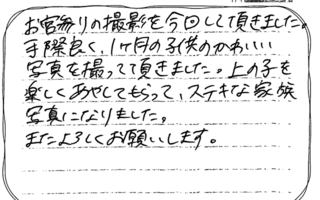 お宮参りの撮影を今回して頂きました。
手際良く、1ヶ月の子供のかわいい
写真を撮って頂きました。上の子を
楽しくあやしてもらって、ステキな家族
写真になりました。
またよろしくお願いします。